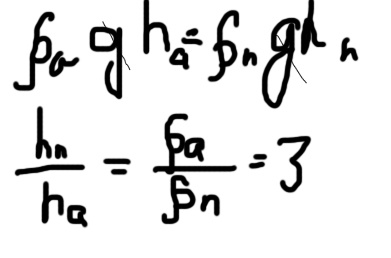 ρₐ g hₐ = ρₙ g hₙ
hₙ/hₐ = ρₐ/ρₙ = 3